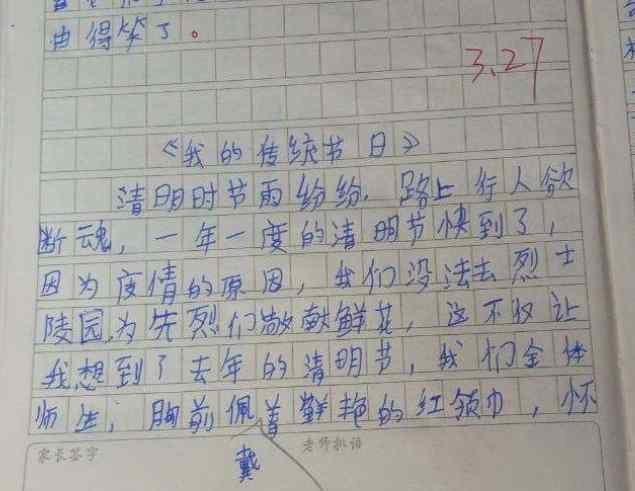 由得笑了。
3.27
《我的传统节日》
清明时节雨纷纷,路上行人欲
断魂,一年一度的清明节快到了,
因为疫情的原因,我们没法去烈士
陵园,为先烈们敬献鲜花,这不仅让
我想到了去年的清明节,我们全体
师生,胸前佩着鲜艳的红领巾,怀
戴
家长签字
老师批语